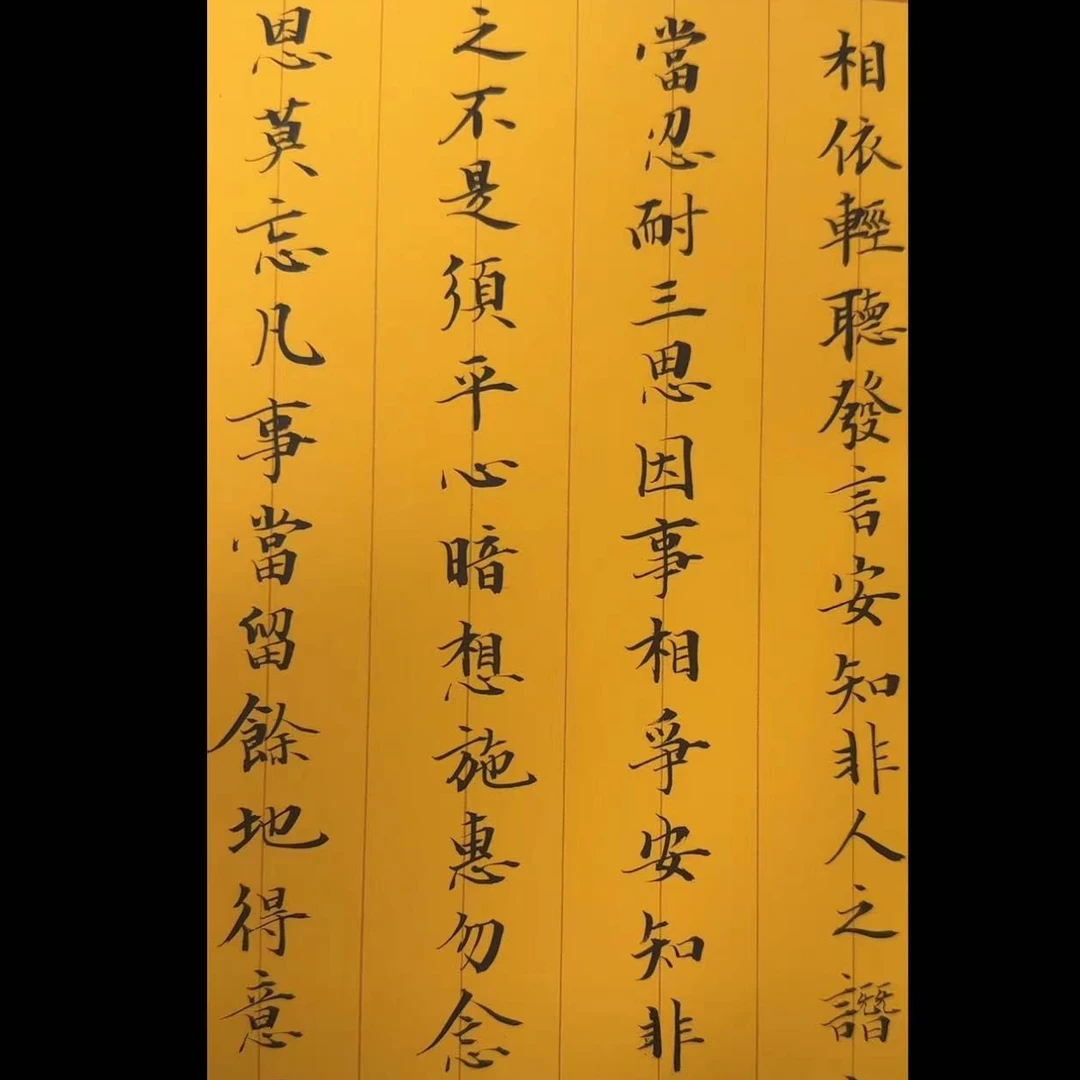 相依輕聽發言安知非人之譖
當忍耐三思因事相爭安知非
之不是須平心暗想施惠勿念
恩莫忘凡事當留餘地得意